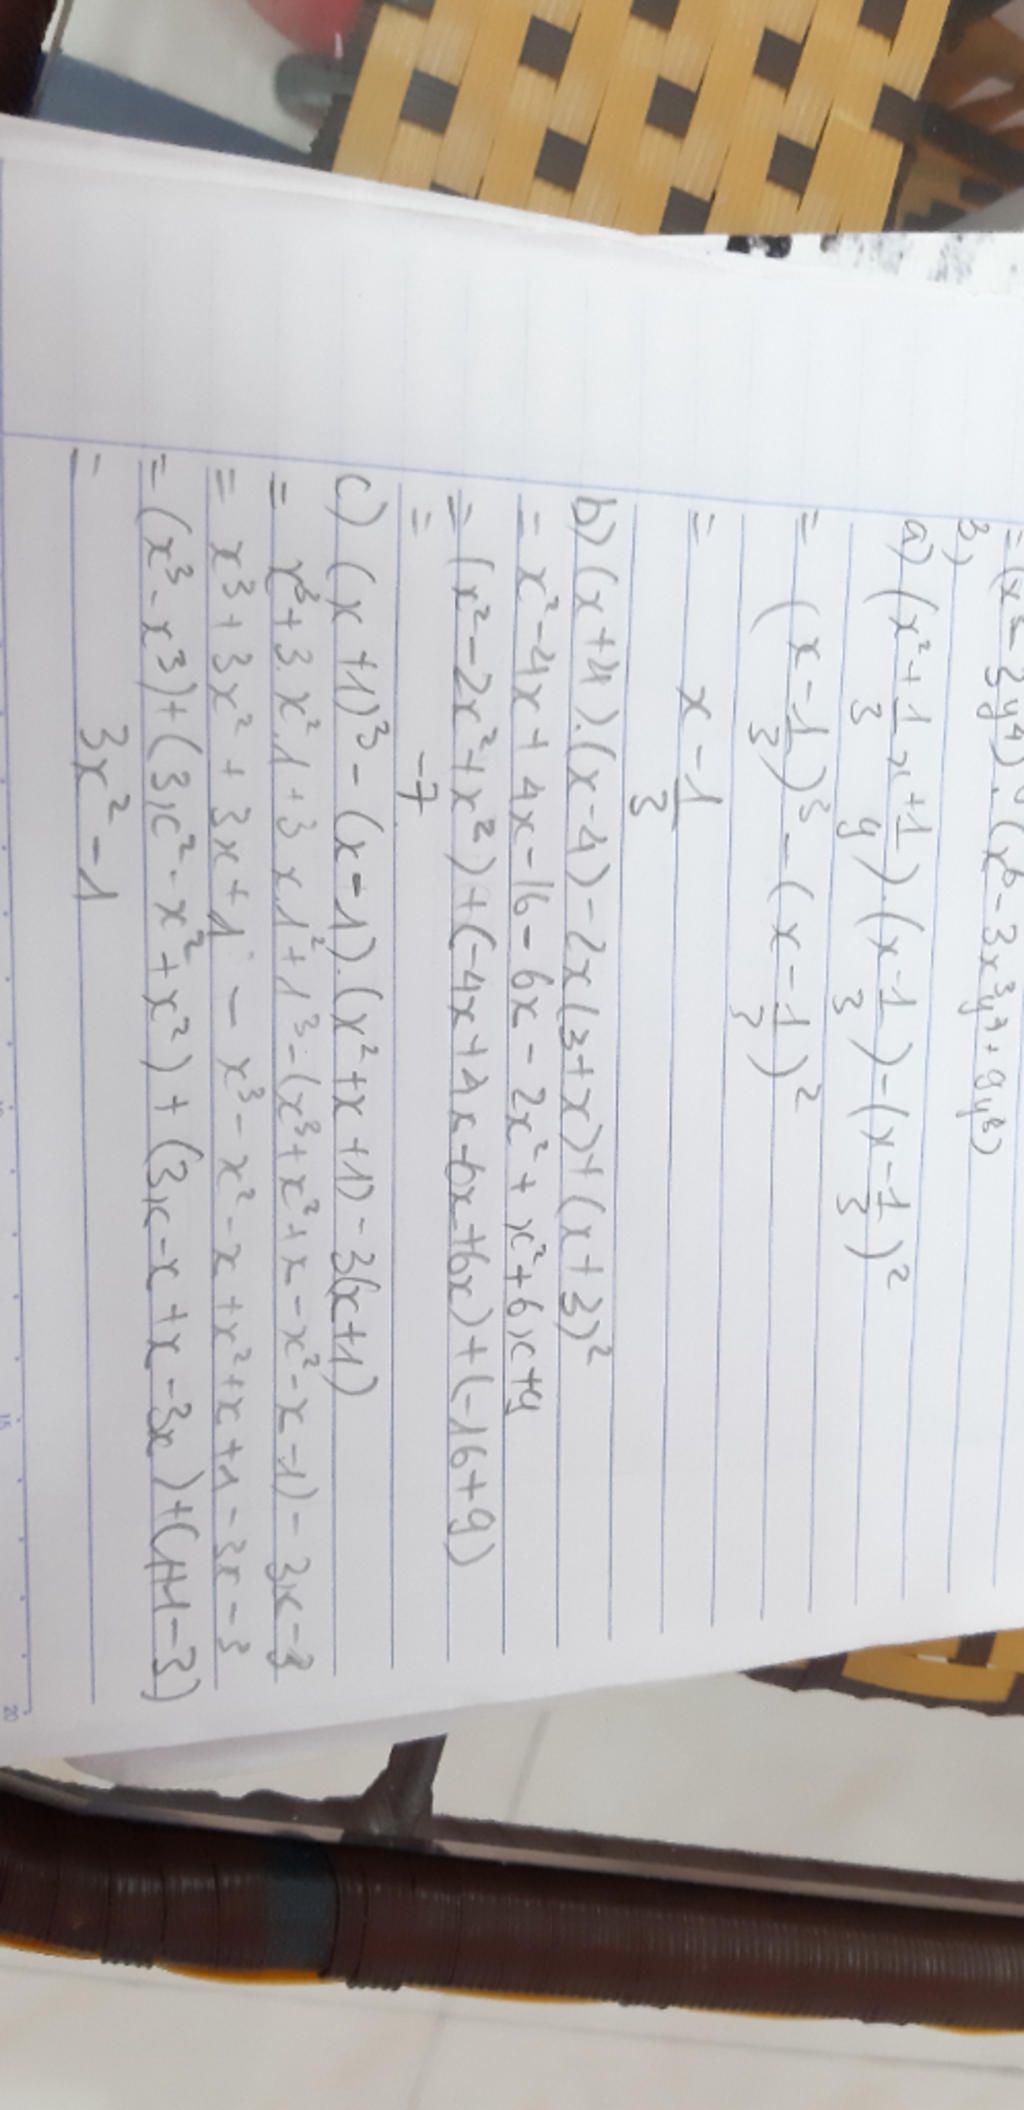 = (x² - 3y⁴) . (x⁶ - 3x³y⁷ + 9y⁸)
3)
a) (x² + 1/3 x + 1/9) . (x - 1/3) - (x - 1/3)²
= (x - 1/3)³ - (x - 1/3)²
= x - 1/3
b) (x + 4) . (x - 4) - 2x (3 + x) + (x + 3)²
= x² - 4x + 4x - 16 - 6x - 2x² + x² + 6x + 9
= (x² - 2x² + x²) + (-4x + 4x - 6x + 6x) + (-16 + 9)
= -7
c) (x + 1)³ - (x - 1) . (x² + x + 1) - 3(x + 1)
= x³ + 3.x².1 + 3.x.1² + 1³ - (x³ + x² + x - x² - x - 1) - 3x - 3
= x³ + 3x² + 3x + 1 - x³ - x² - x + x² + x + 1 - 3x - 3
= (x³ - x³) + (3x² - x² + x²) + (3x - x + x - 3x) + (1+1 - 3)
= 3x² - 1
15
20